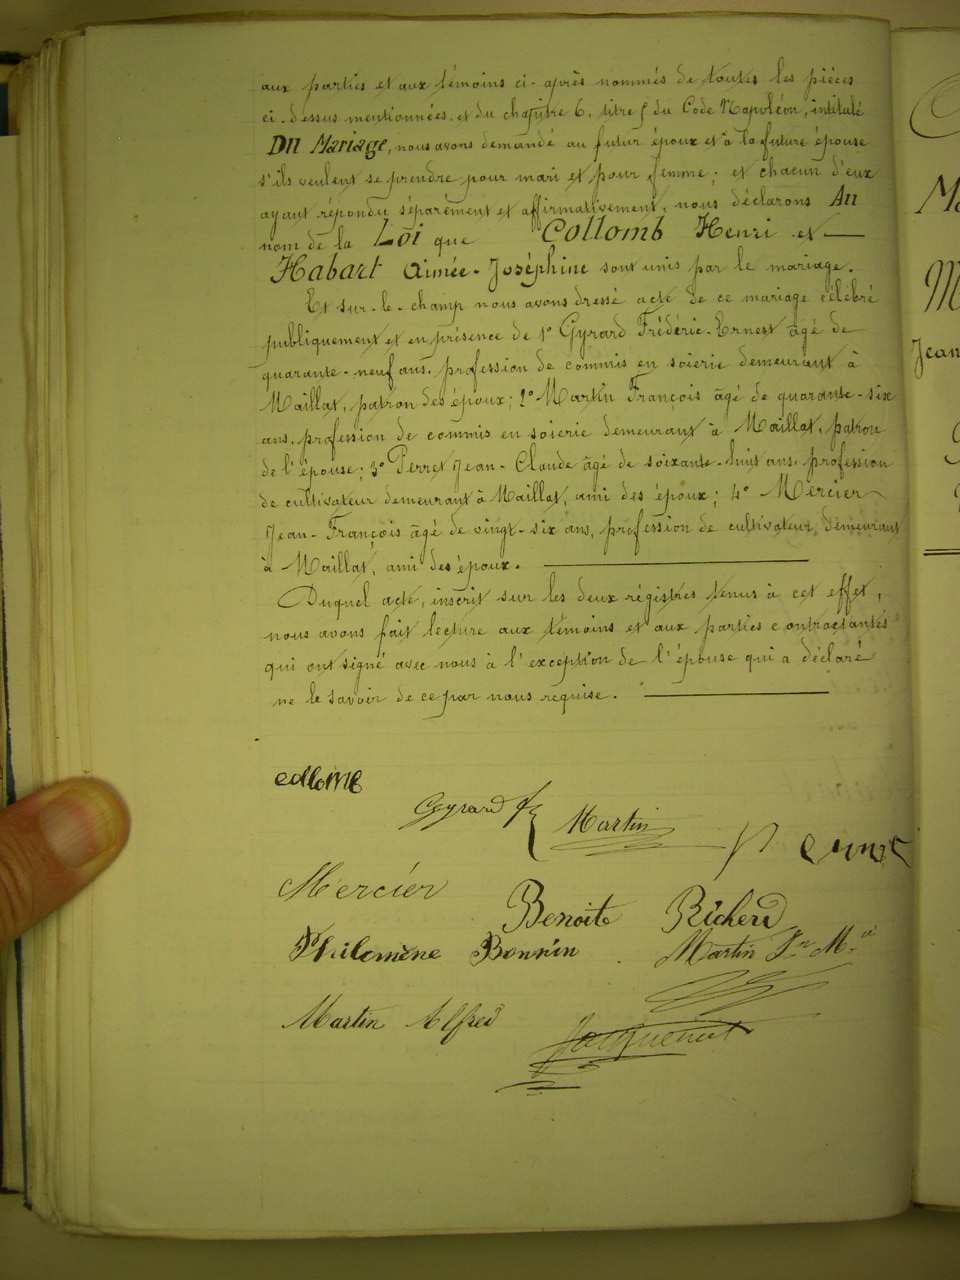 aux parties et aux témoins ci-après nommés de toutes les pièces
ci-dessus mentionnées, et du chapitre 6, titre 5 du Code Napoléon, intitulé
Du Mariage, nous avons demandé au futur époux et à la future épouse
s'ils veulent se prendre pour mari et pour femme; et chacun d'eux
ayant répondu séparément et affirmativement, nous déclarons Au
nom de la Loi que Collomb Henri et
Habart Aimée-Joséphine sont unis par le mariage.
Et sur-le-champ nous avons dressé acte de ce mariage célébré
publiquement et en présence de 1° Gyrard Frédéric-Ernest âgé de
quarante-neuf ans, profession de commis en soierie demeurant à
Maillat, patron des époux; 2° Martin François âgé de quarante-six
ans, profession de commis en soierie demeurant à Maillat, patron
de l'épouse; 3° Perret Jean-Claude âgé de soixante-huit ans, profession
de cultivateur demeurant à Maillat, ami des époux; 4° Mercier
Jean-François âgé de vingt-six ans, profession de cultivateur, demeurant
à Maillat, ami des époux.
Duquel acte, inscrit sur les deux régistres tenus à cet effet,
nous avons fait lecture aux témoins et aux parties contractantes
qui ont signé avec nous à l'exception de l'épouse qui a déclaré
ne le savoir de ce par nous requise.
collomb
Gyrard Martin
Mercier Benoite Richerd
Philomène Bonnin Martin Fs M.
Martin Alfred Jacquenot